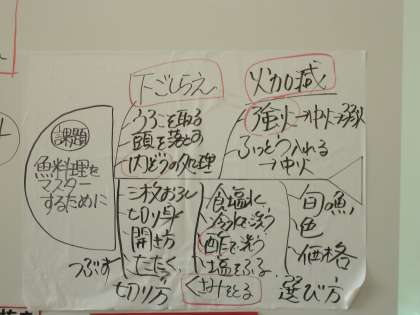 課題
魚料理を
マスター
するために
下ごしらえ
うろこを取る
頭を落とす
内ぞうの処理
火加減
強火→中火→弱火
ふっとう入れる
→中火
三枚おろし
切り身
開き方
たたく
つぶす
切り方
食塩水
冷水で洗う
酢で洗う
塩をふる
くさみをとる
旬の魚
色
価格
選び方